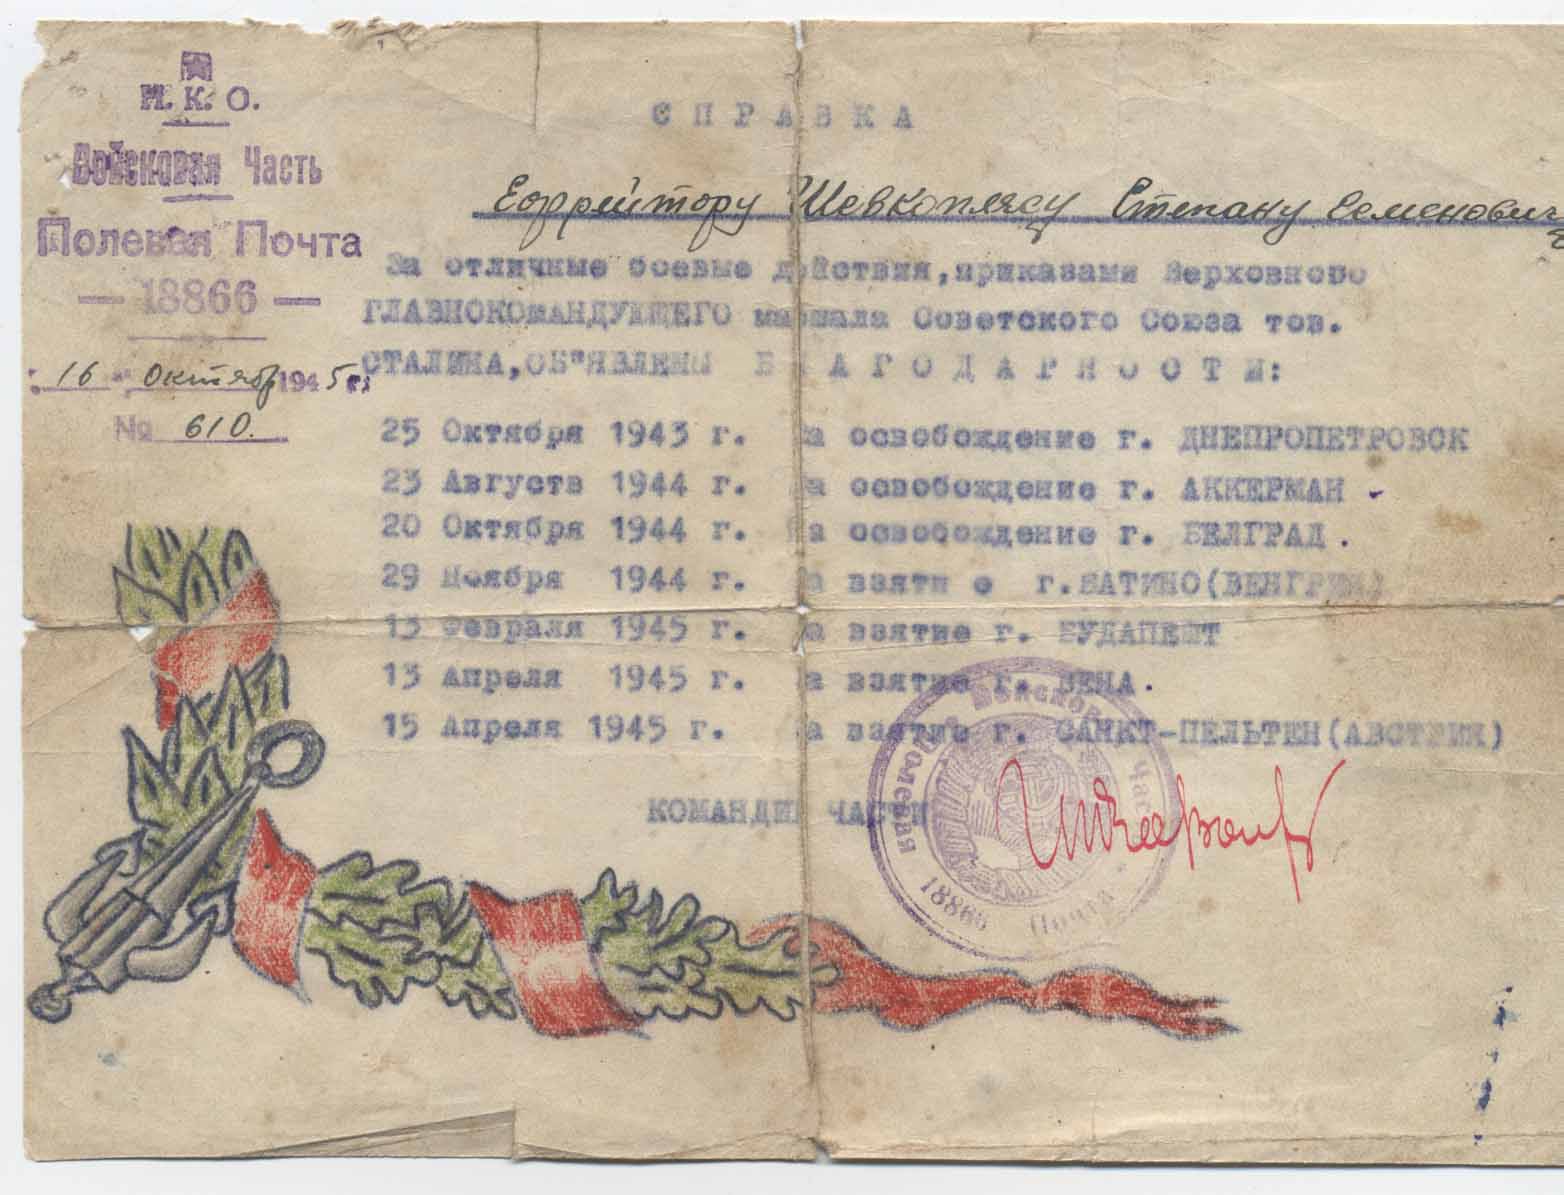 Н. К. О.
Войсковая Часть
Полевая Почта
— 18866 —
"16" Октябр 1945 г.
№ 610.
СПРАВКА
Ефрейтору Шевкоплясу Степану Семенович
За отличные боевые действия, приказами Верховного
ГЛАВНОКОМАНДУЮЩЕГО маршала Советского Союза тов.
СТАЛИНА, ОБ"ЯВЛЕНЫ БЛАГОДАРНОСТИ:
25 Октября 1943 г. За освобождение г. ДНЕПРОПЕТРОВСК
23 Августа 1944 г. За освобождение г. АККЕРМАН
20 Октября 1944 г. За освобождение г. БЕЛГРАД.
29 Ноября 1944 г. За взяти е г. БАТИНО (ВЕНГРИЯ)
13 Февраля 1945 г. За взятие г. БУДАПЕШТ
13 Апреля 1945 г. За взятие г. ВЕНА.
15 Апреля 1945 г. За взятие г. САНКТ-ПЕЛЬТЕН (АВСТРИЯ)
КОМАНДИР ЧАСТИ
Войсковая Часть
Полевая Почта 18866